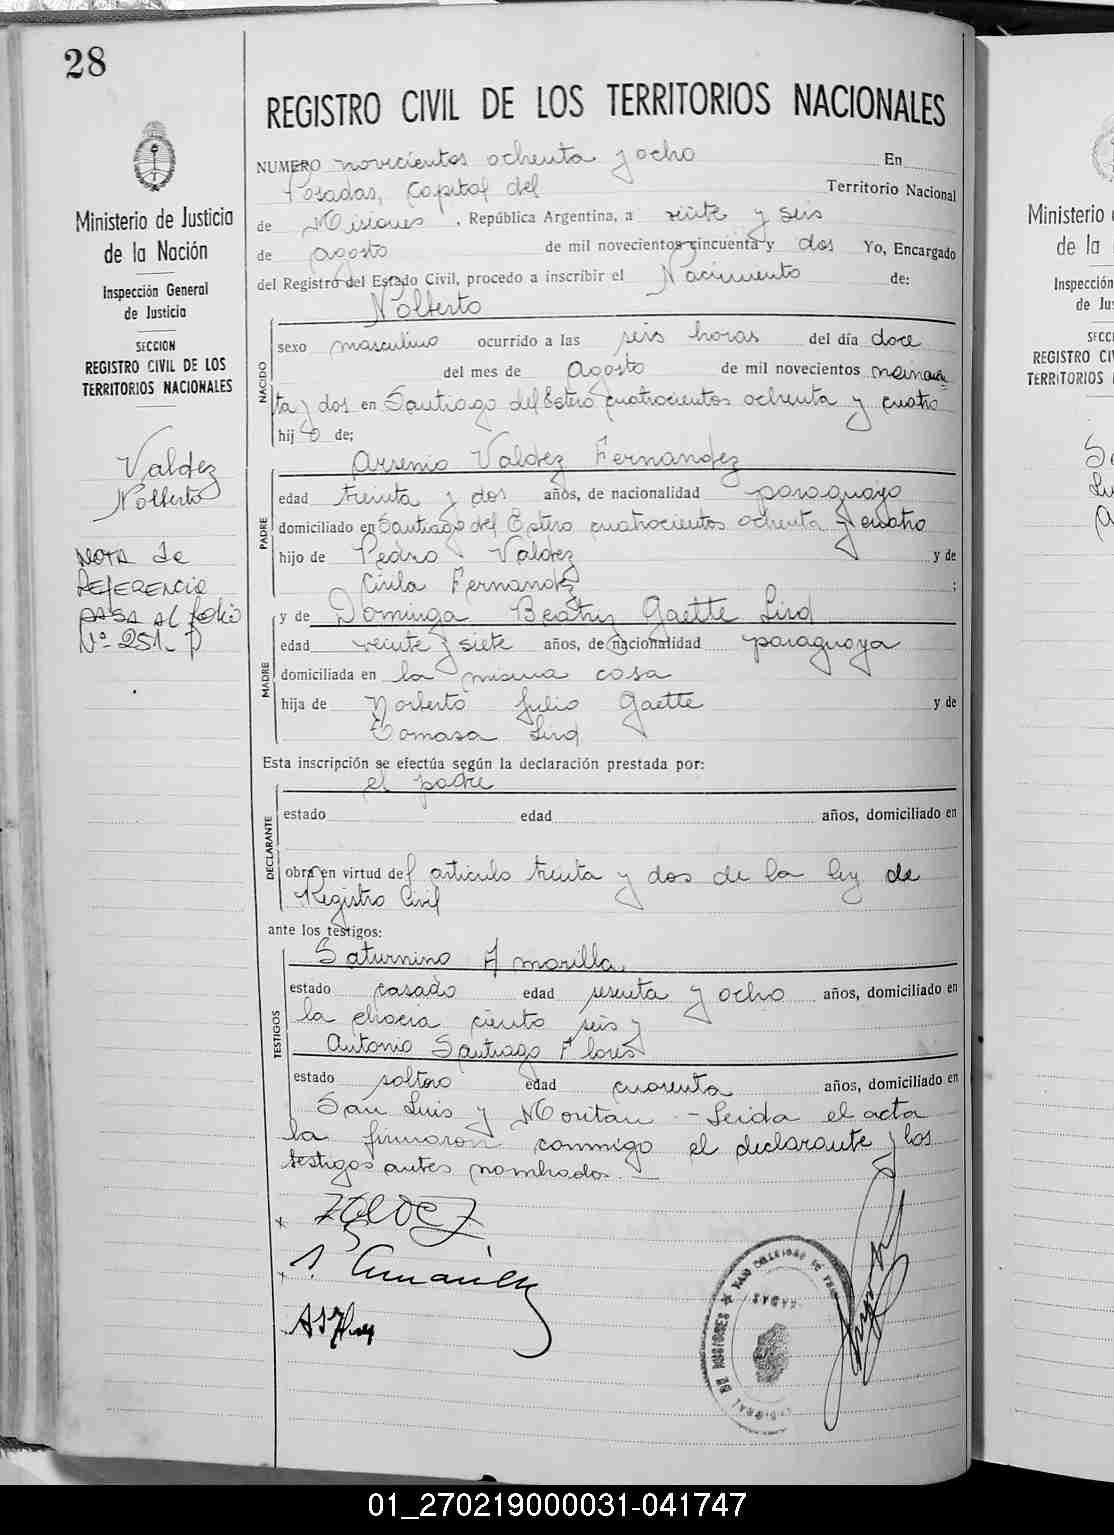 28
REGISTRO CIVIL DE LOS TERRITORIOS NACIONALES
NUMERO novecientos ochenta y ocho En
Posadas, Capital del Territorio Nacional
de Misiones, República Argentina, a veinte y seis
de agosto de mil novecientos cincuenta y dos Yo, Encargado
del Registro del Estado Civil, procedo a inscribir el Nacimiento de:
Nolberto
NACIDO
sexo masculino ocurrido a las seis horas del día doce
del mes de agosto de mil novecientos
ta y dos en Santiago del Estero cuatrocientos ochenta y cuatro
hijo de;
Arsenio Valdez Fernandez
PADRE
edad treinta y dos años, de nacionalidad paraguayo
domiciliado en Santiago del Estero cuatrocientos ochenta y cuatro
hijo de Pedro Valdez y de
Cirila Fernandez ;
y de Dominga Beatriz Gaette Lird
MADRE
edad veinte y siete años, de nacionalidad paraguaya
domiciliada en la misma casa
hija de Norberto Julio Gaette y de
Tomasa Lird
Esta inscripción se efectúa según la declaración prestada por:
el padre
DECLARANTE
estado edad años, domiciliado en
obra en virtud del articulo treinta y dos de la ley de
Registro Civil
ante los testigos:
Saturnino Amarilla
TESTIGOS
estado casado edad sesenta y ocho años, domiciliado en
la chacra ciento seis y
Antonio Santiago Flores
estado soltero edad cuarenta años, domiciliado en
San Luis y Moritan - Leida el acta
la firmaron conmigo el declarante y los
testigos antes nombrados. —
Ministerio de Justicia
de la Nación
Inspección General
de Justicia
SECCION
REGISTRO CIVIL DE LOS
TERRITORIOS NACIONALES
Valdez
Nolberto
NOTA de
REFERENCIA
PASA AL folio
Nº 251
Ministerio
de la
Inspección
de Jus
SECC
REGISTRO CIV
TERRITORIOS
01_270219000031-041747